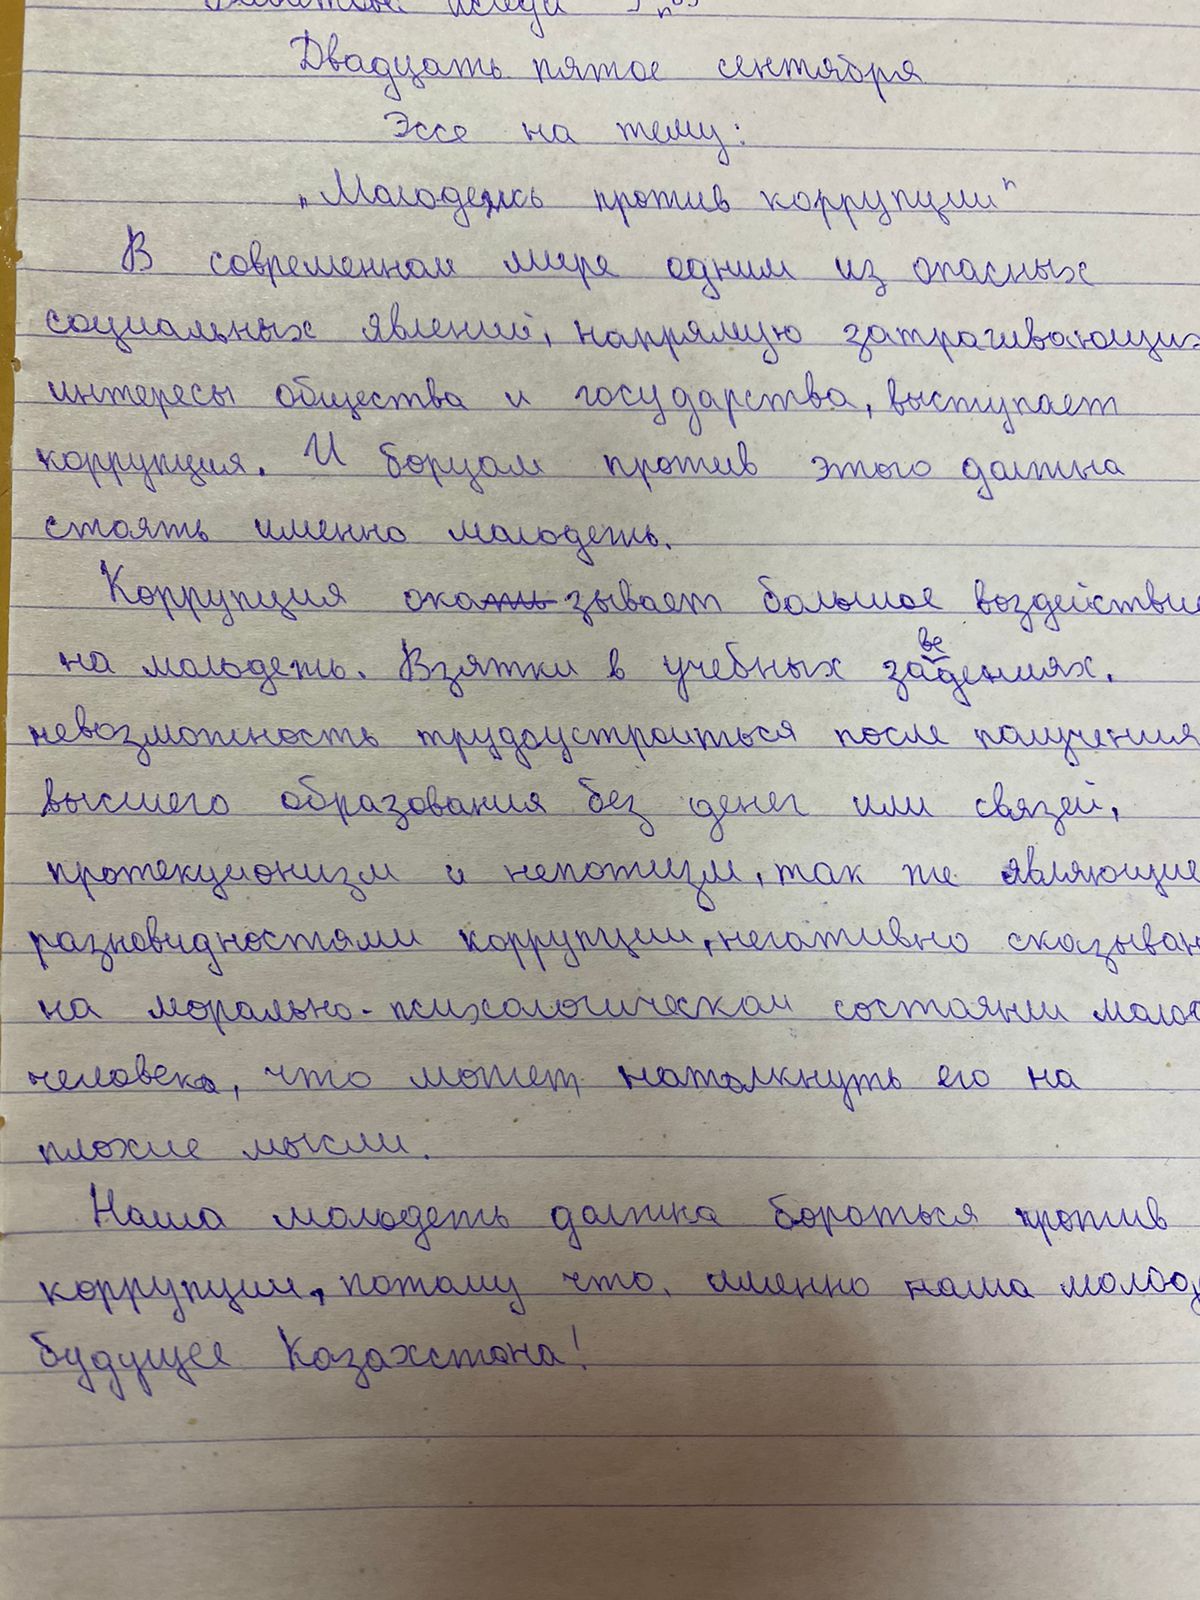 Двадцать пятое сентября
Эссе на тему:
„Молодежь против коррупции"
В современном мире одним из опасных
социальных явлений, напрямую затрагивающих
интересы общества и государства, выступает
коррупция. И борцом против этого должна
стоять именно молодежь.
Коррупция оказывает большое воздействие
на молодежь. Взятки в учебных заведениях,
невозможность трудоустроиться после получения
высшего образования без денег или связей,
протекционизм и непотизм, так же являющие
разновидностями коррупции, негативно сказыван
на морально-психологическом состоянии моло
человека, что может натолкнуть его на
плохие мысли.
Наша молодежь должна бороться против
коррупции, потому что, именно наша молод
будущее Казахстана!